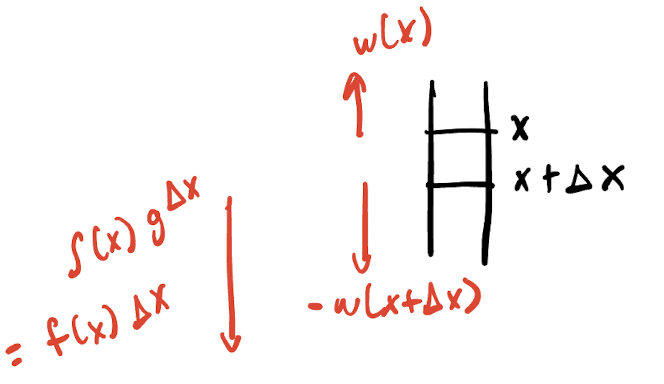 w(x)
x
x + Δx
ρ(x) g Δx
= f(x) Δx
- w(x+Δx)